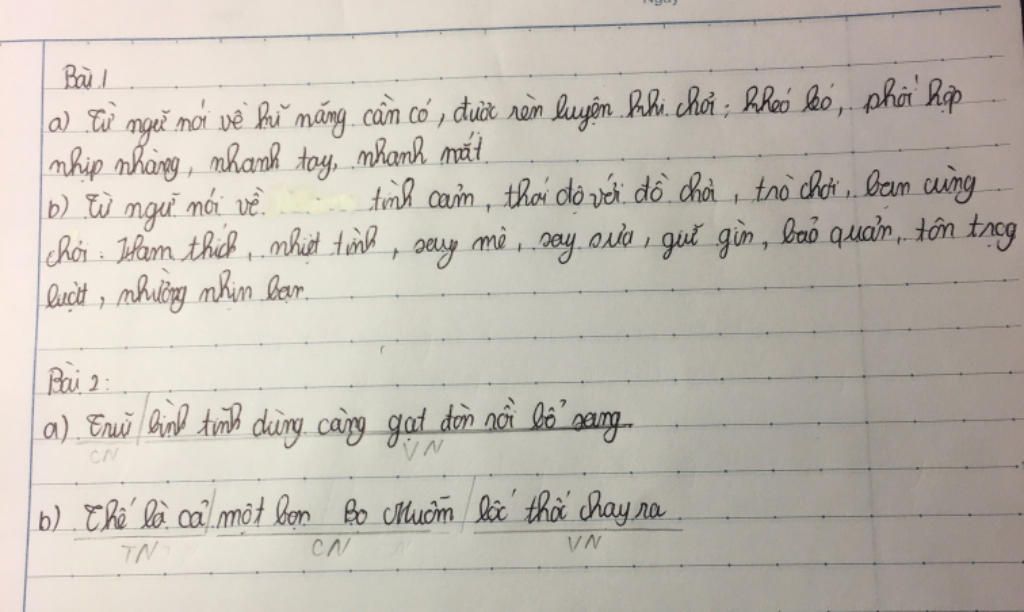 Ngày
Bài 1
a) Từ ngữ nói về kĩ năng cần có, được rèn luyện khi chơi: khéo léo, phối hợp
nhịp nhàng, nhanh tay, nhanh mắt.
b) Từ ngữ nói về tình cảm, thái độ với đồ chơi, trò chơi, bạn cùng
chơi: Ham thích, nhiệt tình, say mê, say sưa, giữ gìn, bảo quản, tôn trọng
luật, nhường nhịn bạn.
Bài 2:
a) Trũi / bình tĩnh dùng càng gạt đòn rồi bổ sang
CN VN
b) Thế là cả / một bọn Bọ Muỗm / lốc thốc chạy ra
TN CN VN